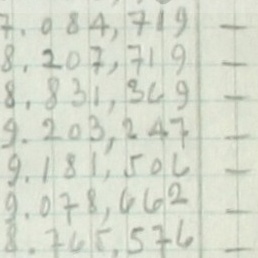 7.084,719 —
8.207,719 —
8.831,369 —
9.203,247 —
9.181,506 —
9.078,662 —
8.765,576 —